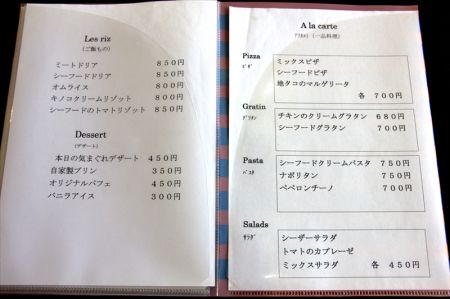 Les riz
(ご飯もの)
ミートドリア　８５０円
シーフードドリア　８５０円
オムライス　８００円
キノコクリームリゾット　８００円
シーフードのトマトリゾット　８５０円
Dessert
(デザート)
本日の気まぐれデザート　４５０円
自家製プリン　３５０円
オリジナルパフェ　４５０円
バニラアイス　３００円
A la carte
ｱﾗｶﾙﾄ (一品料理)
Pizza
ﾋﾟｻﾞ
ミックスピザ
シーフードピザ
地タコのマルゲリータ
各　７００円
Gratin
ｸﾞﾗﾀﾝ
チキンのクリームグラタン　６８０円
シーフードグラタン　７００円
Pasta
ﾊﾟｽﾀ
シーフードクリームパスタ　７５０円
ナポリタン　７５０円
ペペロンチーノ　７００円
Salads
ｻﾗﾀﾞ
シーザーサラダ
トマトのカプレーゼ
ミックスサラダ　各　４５０円